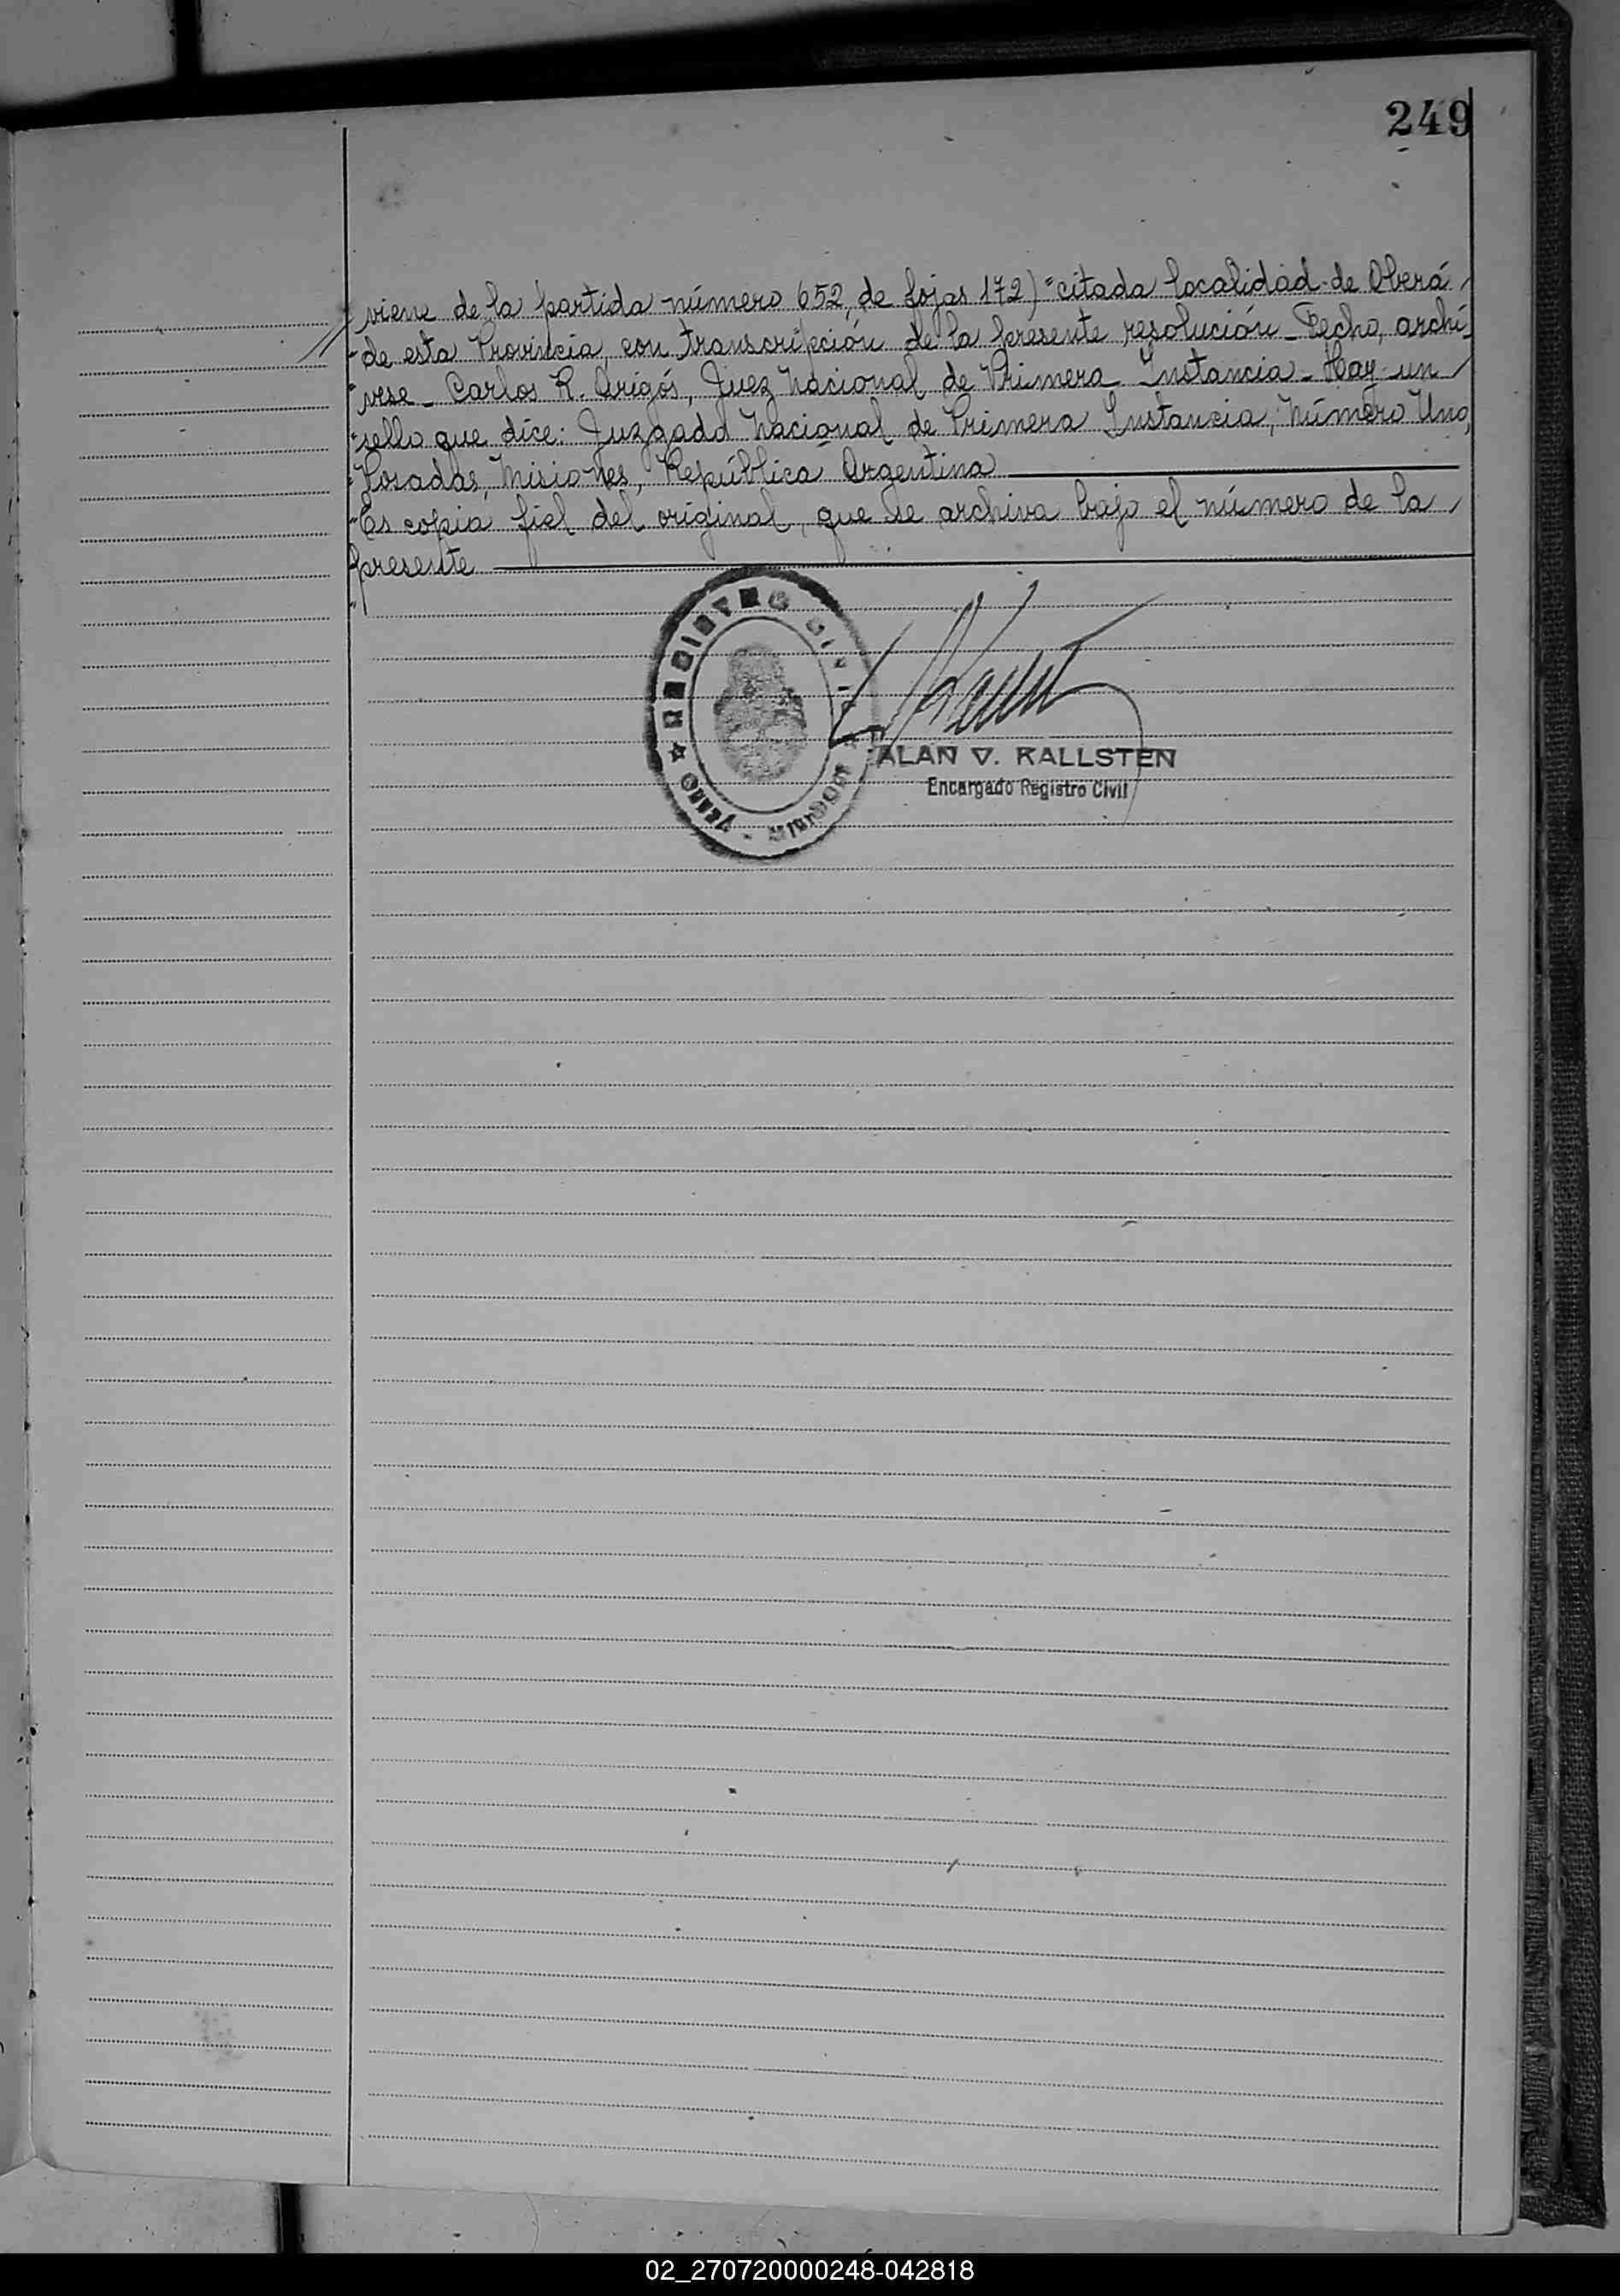 249
viene de la partida número 652, de fojas 172) "citada localidad de Oberá
de esta Provincia, con transcripción de la presente resolución - Fecho, archí
vese - Carlos R. Arigós, Juez Nacional de Primera Instancia - Hay un
sello que dice: Juzgado Nacional de Primera Instancia, Número Uno,
Posadas, Misiones, República Argentina
Es copia fiel del original, que se archiva bajo el número de la
presente
REGISTRO CIVIL
ALAN V. KALLSTEN
Encargado Registro Civil
02_270720000248-042818